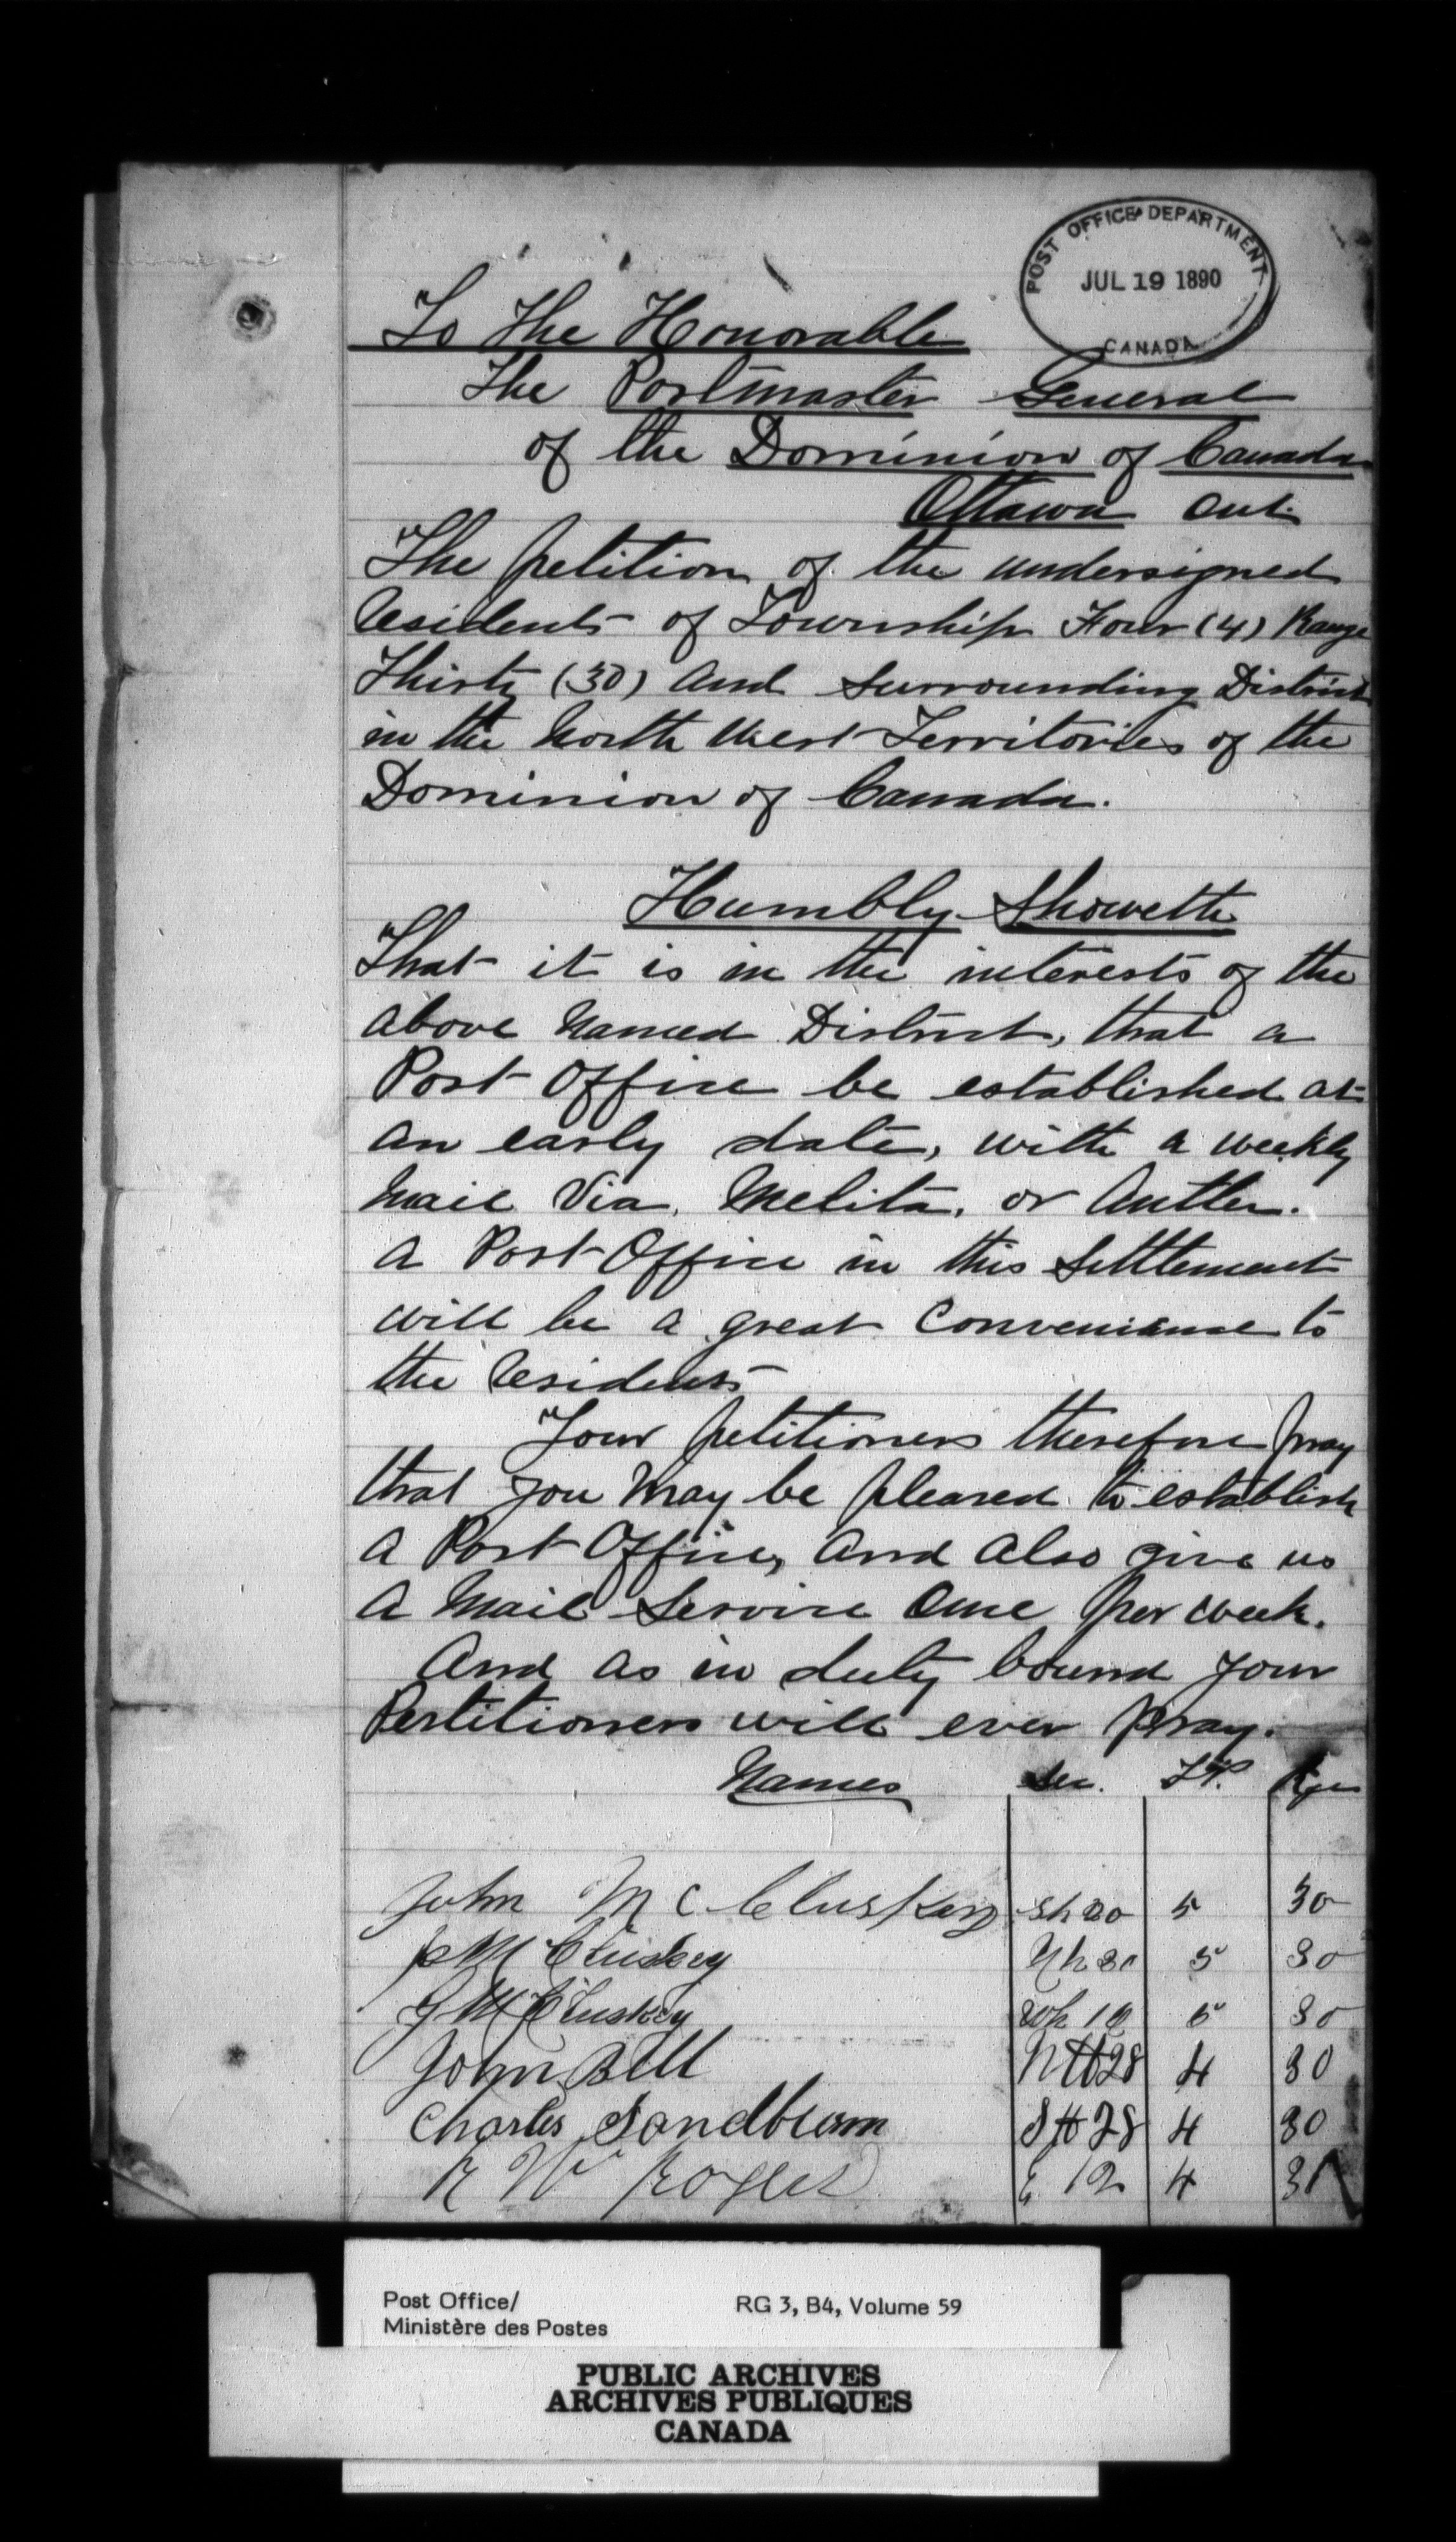 POST OFFICE DEPARTMENT
JUL 19 1890
CANADA
To The Honorable
The Postmaster General
of the Dominion of Canada
Ottawa Ont.
The petition of the undersigned
residents of Township Four (4) Range
Thirty (30) and Surrounding District
in the North West Territories of the
Dominion of Canada.
Humbly Showeth
That it is in the interests of the
above Named District, that a
Post Office be established at
an early date, with a weekly
Mail Via, Melita, or Antler.
A Post Office in this Settlement
will be a great Convenience to
the residents
Your petitioners therefore pray
that you May be pleased to establish
a Post Office, And also give us
a Mail Service Once per week.
And as in duty bound your
Pertitioners will ever Pray.
Names Sec. TP. Rge
John McCluskey Sh 20 5 30
McCluskey Nh 5 30
McCluskey Wh 30
John Bell NH 28 4 30
Charles Sandblom SH 28 4 30
R W Roger E 12 4 31
Post Office/ RG 3, B4, Volume 59
Ministère des Postes
PUBLIC ARCHIVES
ARCHIVES PUBLIQUES
CANADA